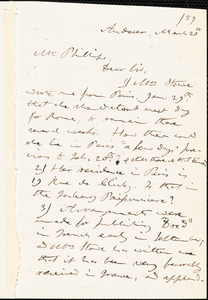 159
Andover, March 20
Mr Phillips,
Dear Sir,
1) Mrs Stowe
wrote me from Paris Jan. 29th
that she should start next day
for Rome, to remain there
several weeks. How then could
she be in Paris "a few days" pre-
vious to Feb. 20th,
2) Her residence in Paris is
19 Rue de Clichy. Is that in
the
3) Arrangements were
made for publishing Dred
in French early in
and Mrs Stowe has written me
that it has been very favorably
received in France, and